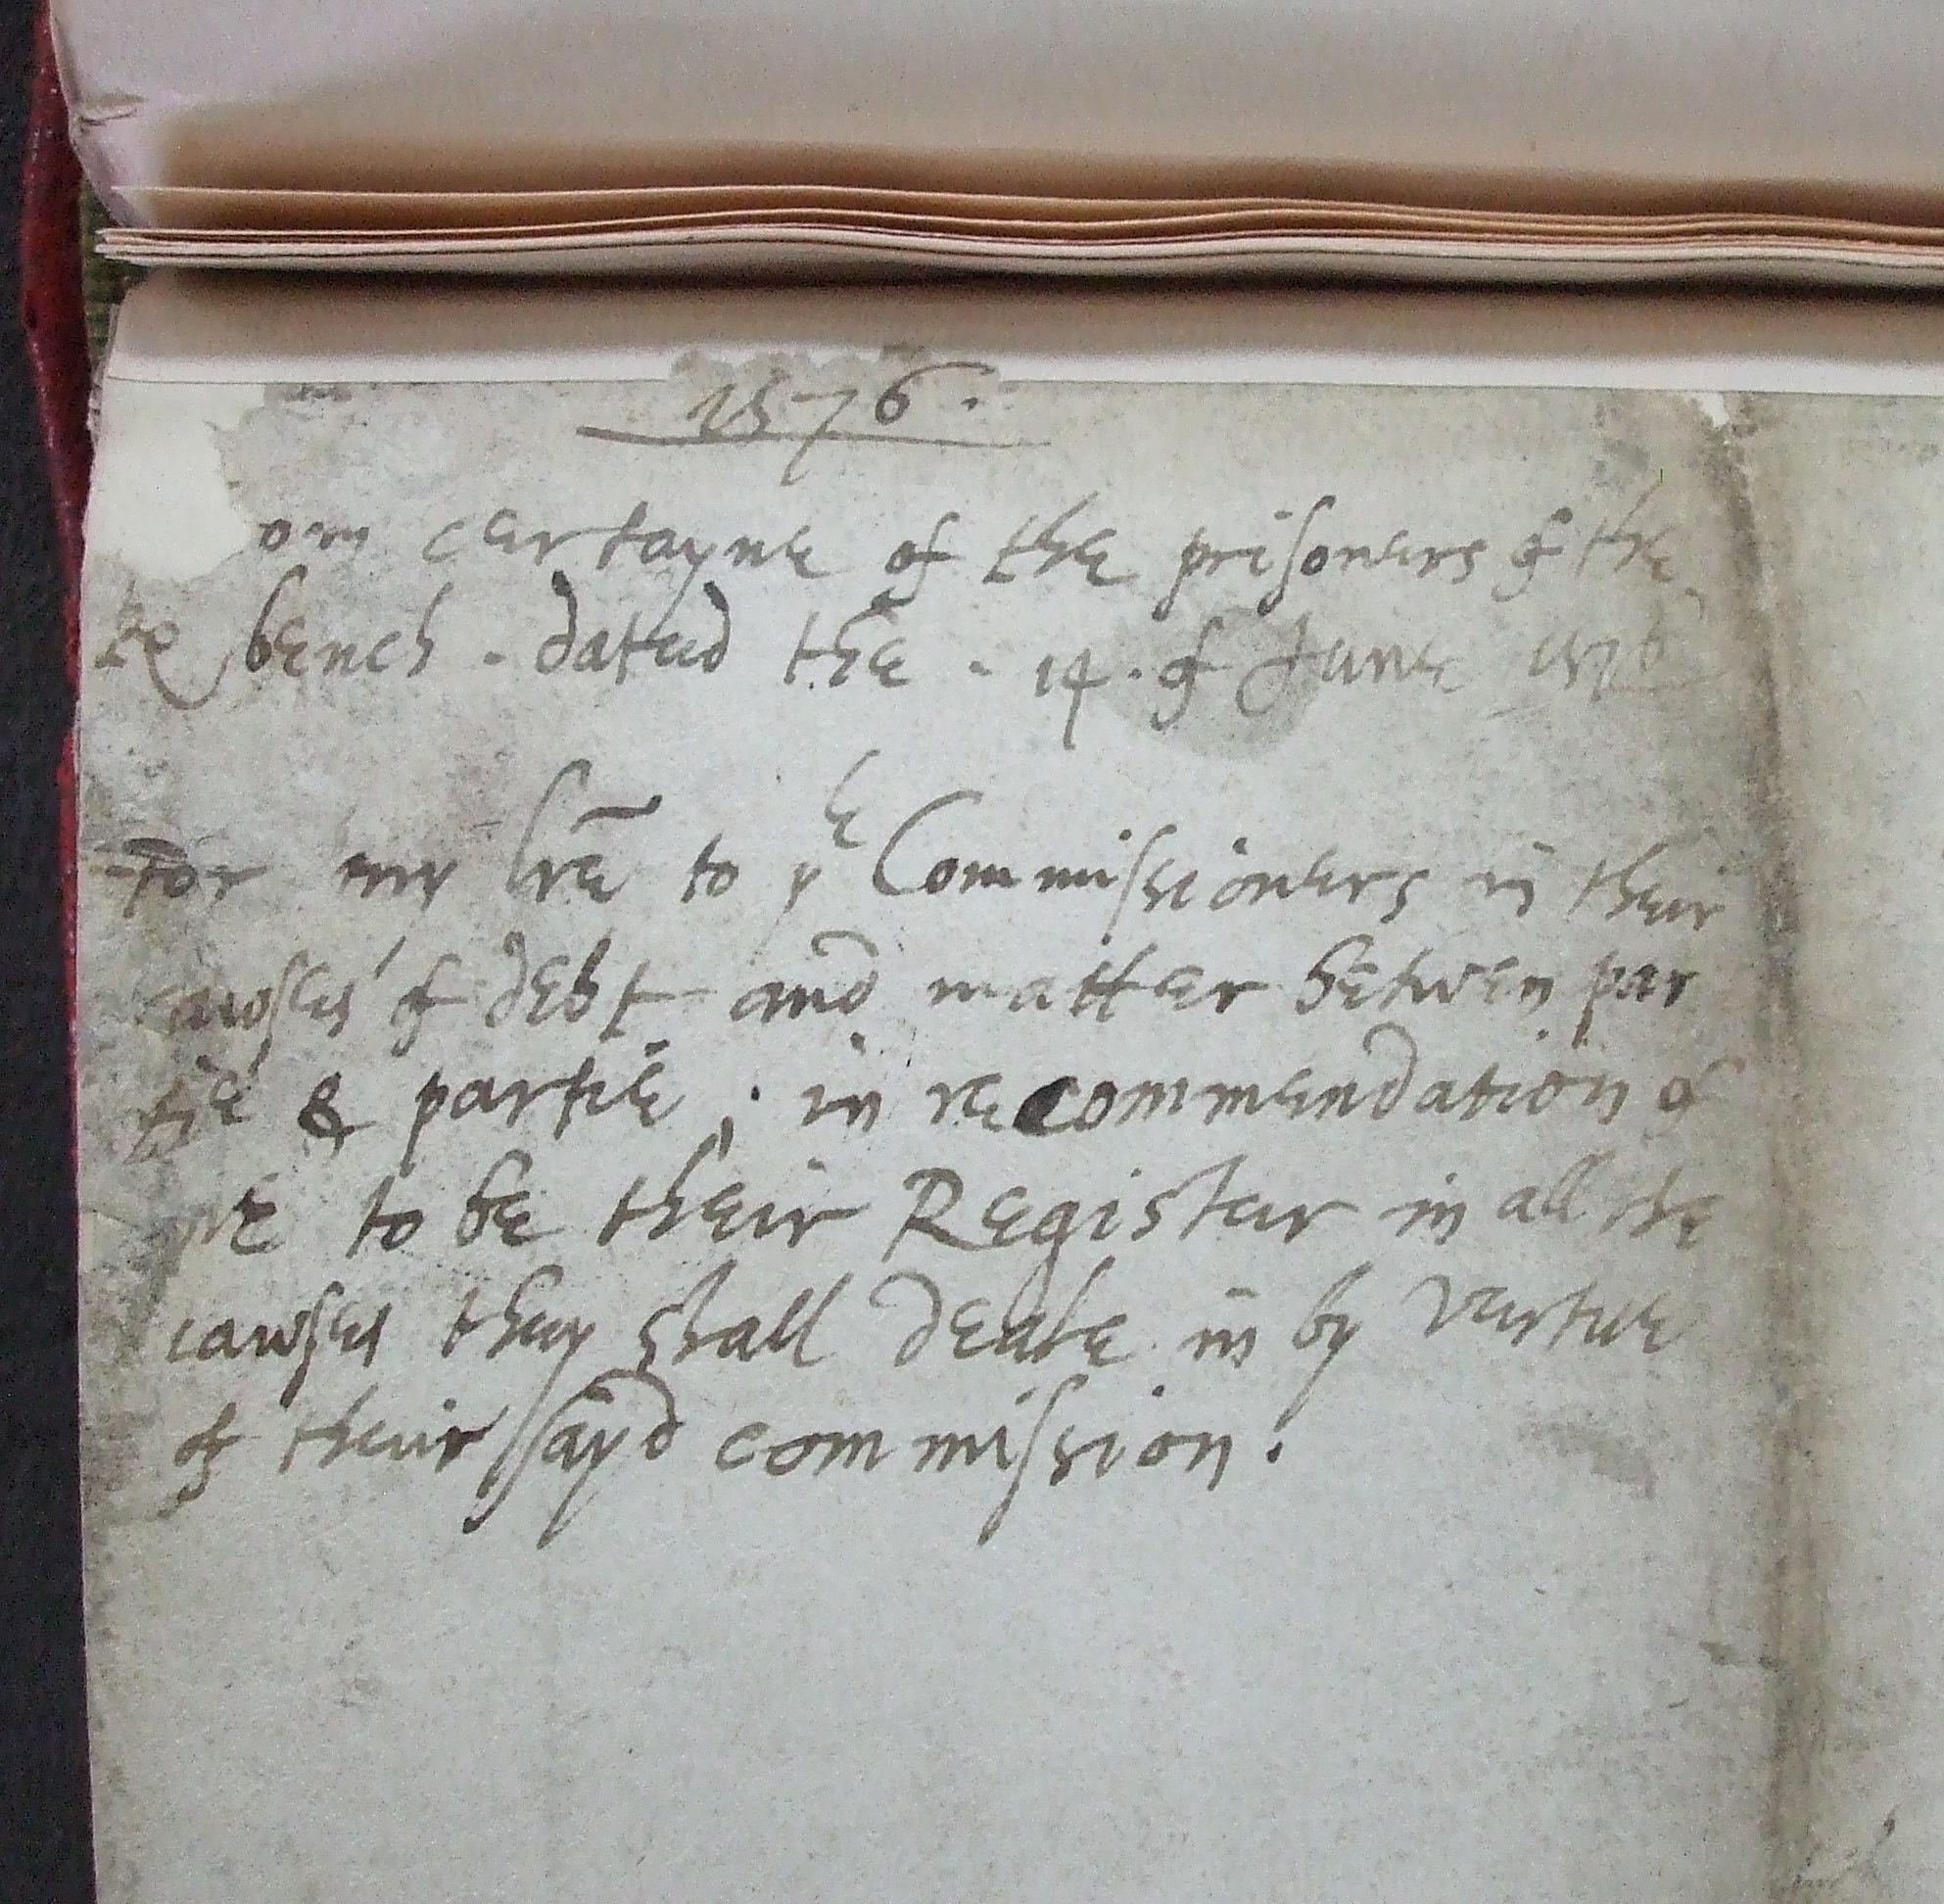 1576.
om certayne of the prisoners of the
bench . dated the . 14 . of June 1576
For my lr̃e to yᵉ Commissioners in their
cawses of debt and matter betwen par
tie & partie ; in recommendation of
me to be their Register in all the
cawses they shall deale in by vertue
of their sayd commission .